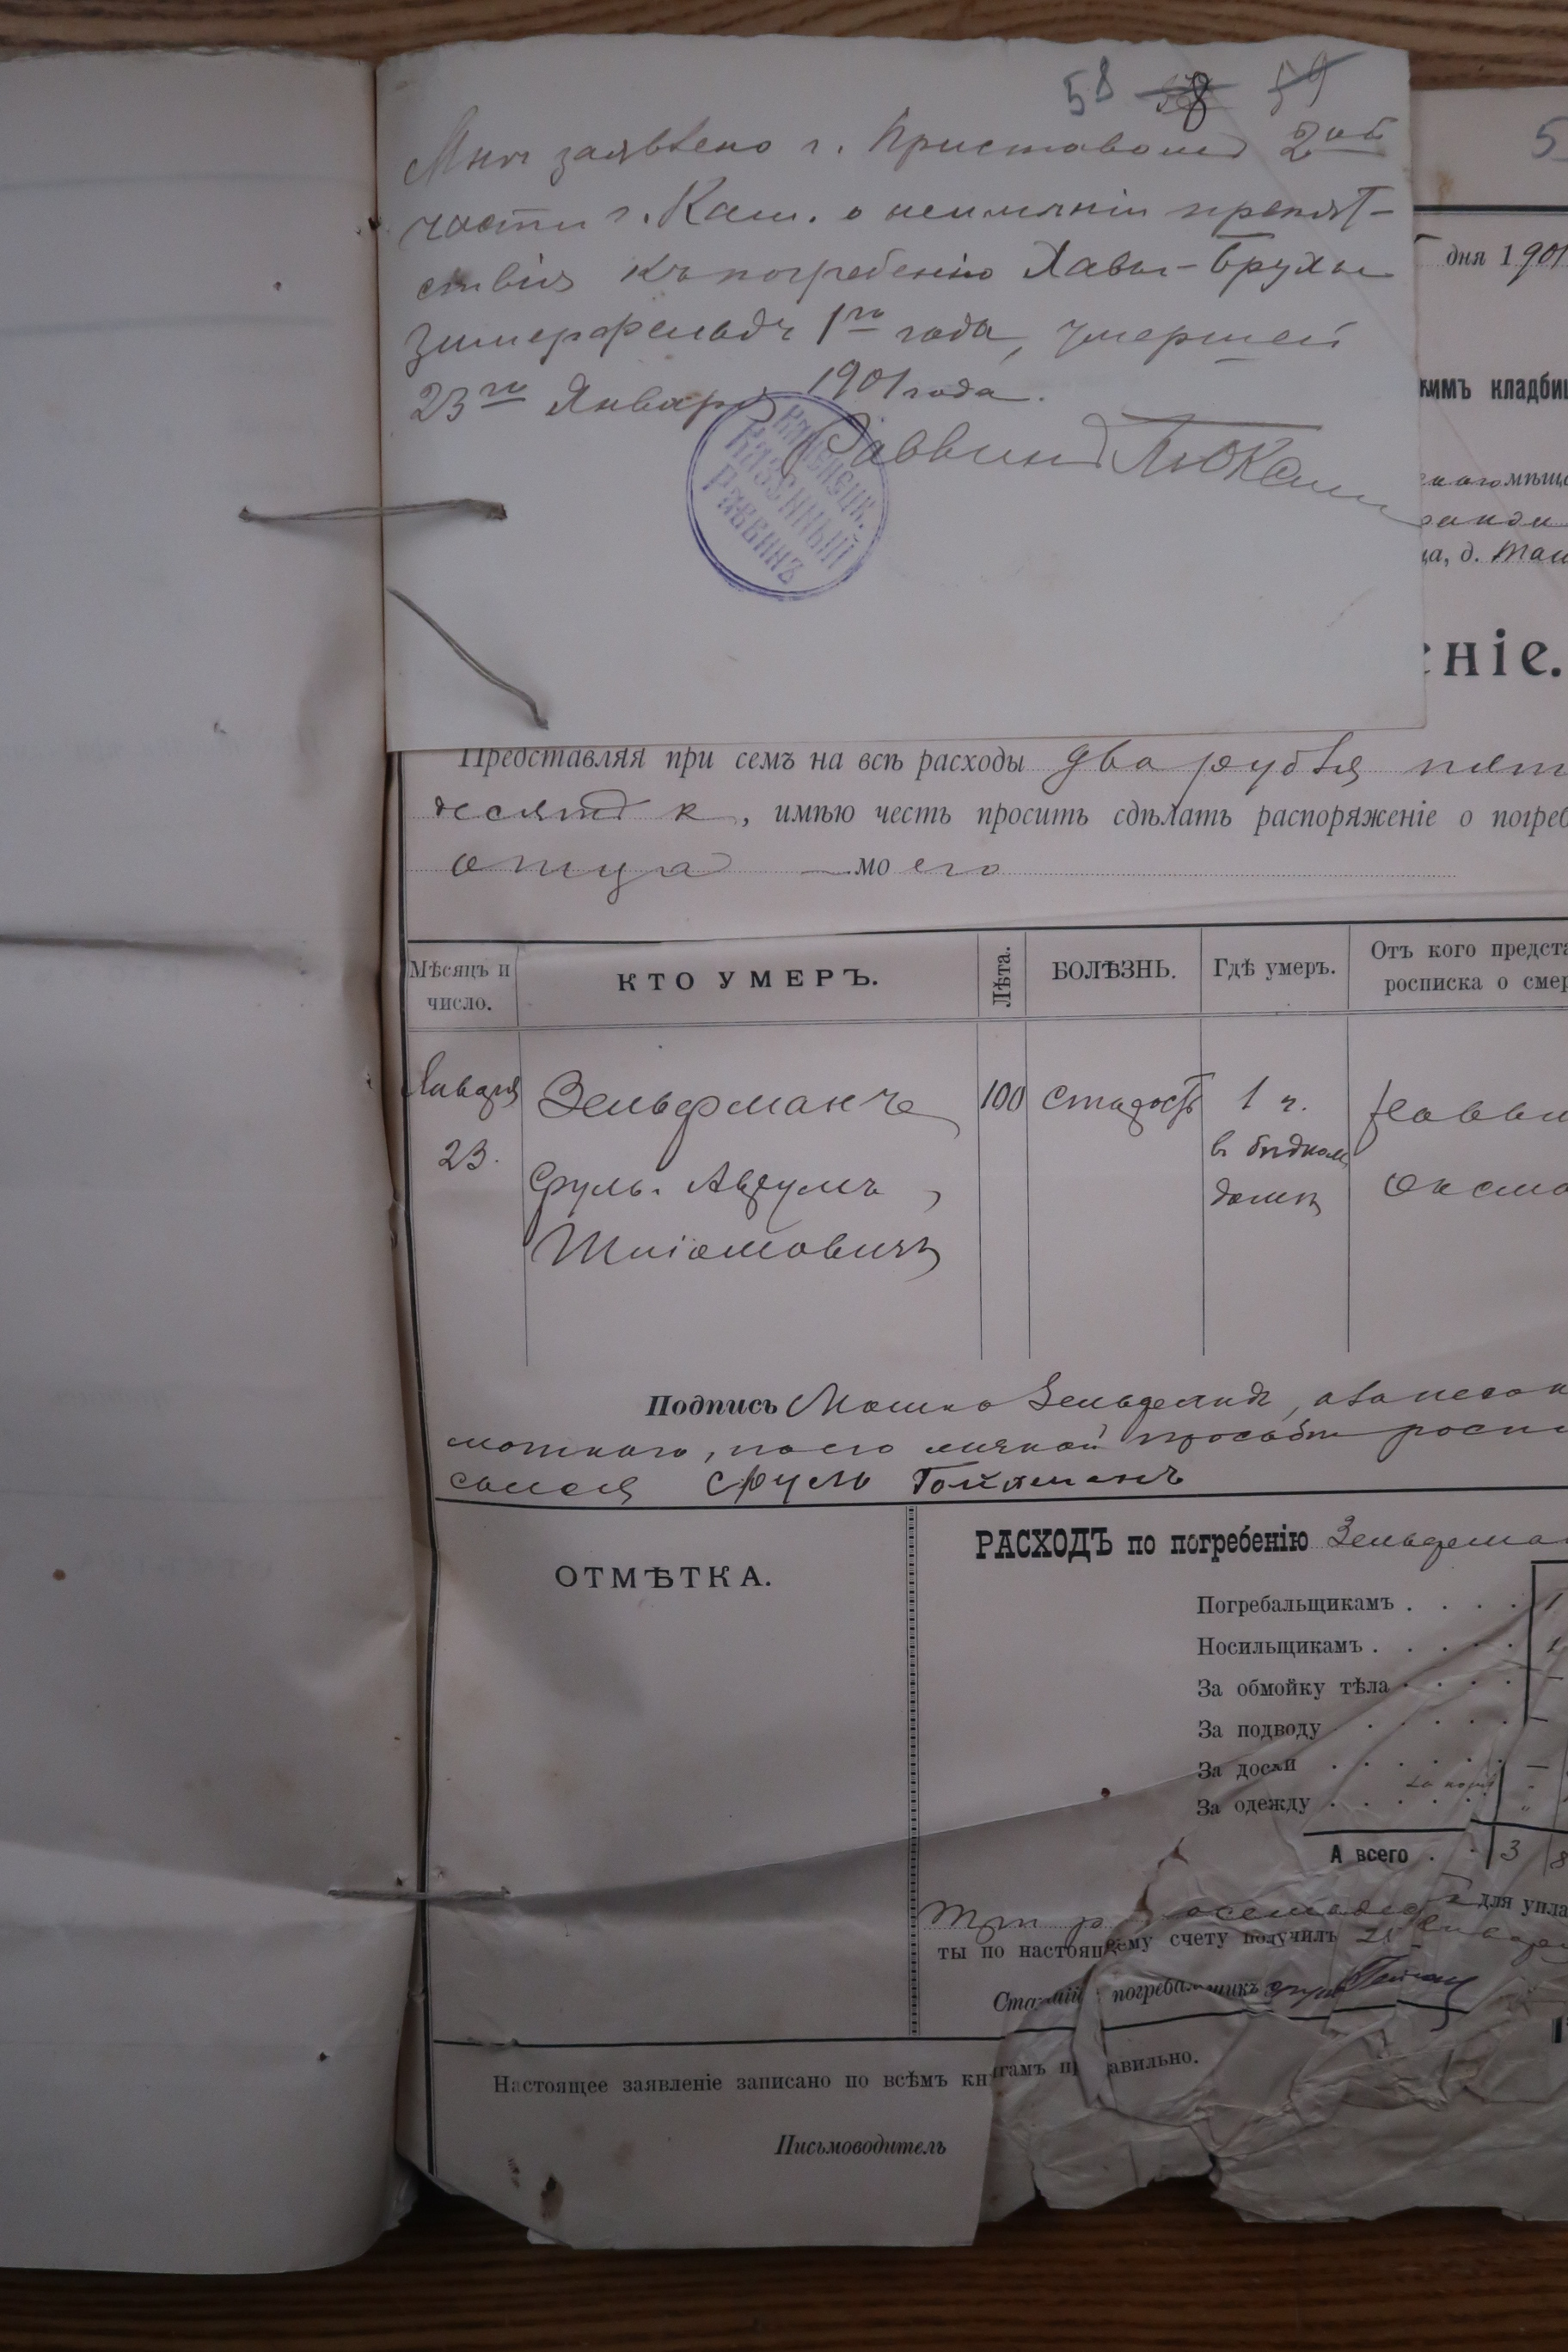 58 59
Мною заявлено г. Приставомъ 2ой
части г. Кам. о неимѣніи препят-
ствія къ погребенію Хавы-Брухы
Зимерфельдъ 1го года, умершей
23го Января 1901 года.
Раввинъ
Каменецк.
Казенный
Раввинъ
5
дня 1901
кимъ кладби
мѣщ
ца, д.
ніе.
Представляя при семъ на всѣ расходы два рубля пят
десятъ к, имѣю честь просить сдѣлать распоряженіе о погреб
отца моего
Мѣсяцъ и число.
КТО УМЕРЪ.
Лѣта.
БОЛѢЗНЬ.
Гдѣ умеръ.
Отъ кого предста
росписка о смер
Января
23.
Зельдманъ
Сруль Аврумъ
Шліомовичъ
100
старость
1 ч.
в бѣдном
домѣ
Равви
Оксма
Подпись Мошко Зельдманъ, а за негра
мотного, по его личной просьбѣ роспи
сался Сруль Гойхманъ
ОТМѢТКА.
РАСХОДЪ по погребенію Зельдма
Погребальщикамъ . . . . 1
Носильщикамъ . . . . .
За обмойку тѣла . . . . —
За подводу . . . . . —
За доски . . . . . . —
За одежду . . . . .
А всего . . 3 8
Три р для упла
ты по настоящему счету получилъ 25 Января
Старшій погребальщикъ
Настоящее заявленіе записано по всѣмъ книгамъ правильно.
Письмоводитель